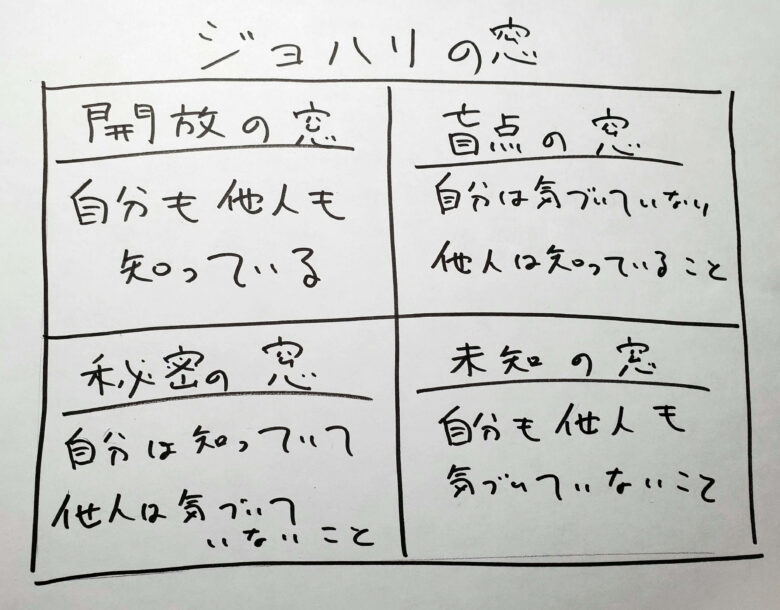 ジョハリの窓
開放の窓
自分も他人も
知っている
盲点の窓
自分は気づいていない
他人は知っていること
秘密の窓
自分は知っていて
他人は気づいて
いないこと
未知の窓
自分も他人も
気づいていないこと